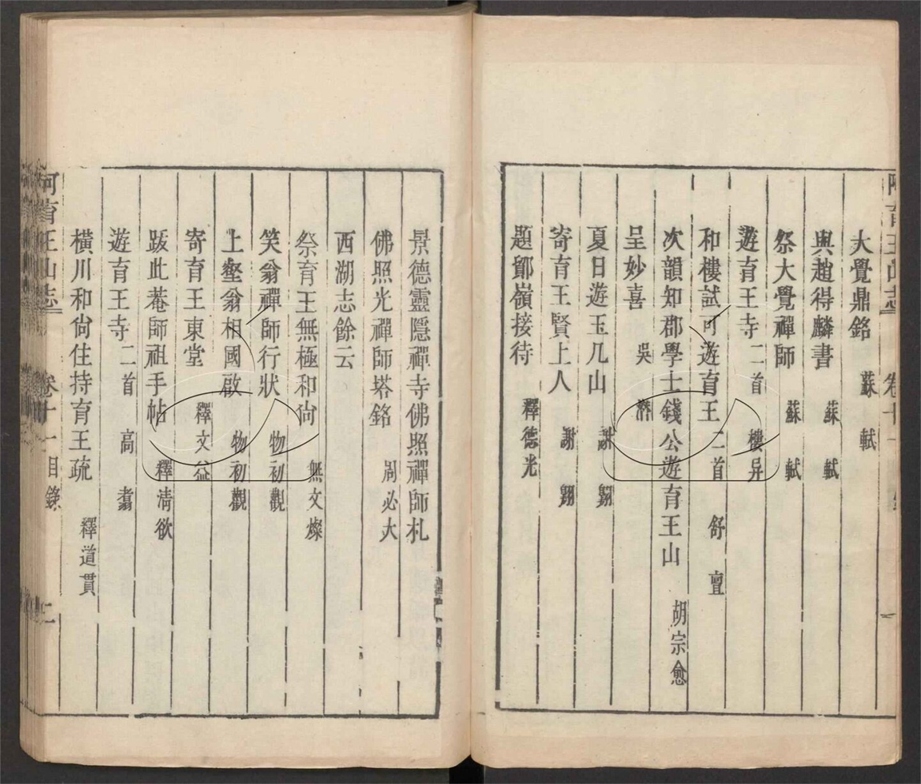 阿育王山志 卷十一
大覺鼎銘 蘇軾
與趙得麟書 蘇軾
祭大覺禪師 蘇軾
遊育王寺二首 樓异
和樓試可遊育王二首 舒亶
次韻知郡學士錢公遊育王山 胡宗愈
呈妙喜 吳潛
夏日遊玉几山 謝翱
寄育王賢上人 謝翱
題鄮嶺接待 釋德光
景德靈隱禪寺佛照禪師札
佛照光禪師塔銘 周必大
西湖志餘云
祭育王無極和尙 無文燦
笑翁禪師行狀 物初觀
上壑翁相國啟 物初觀
寄育王東堂 釋文益
跋此菴師祖手帖 釋清欲
遊育王寺二首 高翥
橫川和尙住持育王疏 釋道貫
阿育王山志 卷十一目錄 二